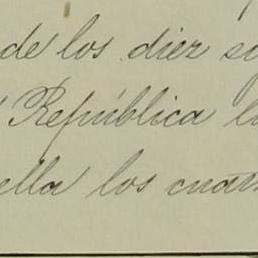 de los diez
República
ella los